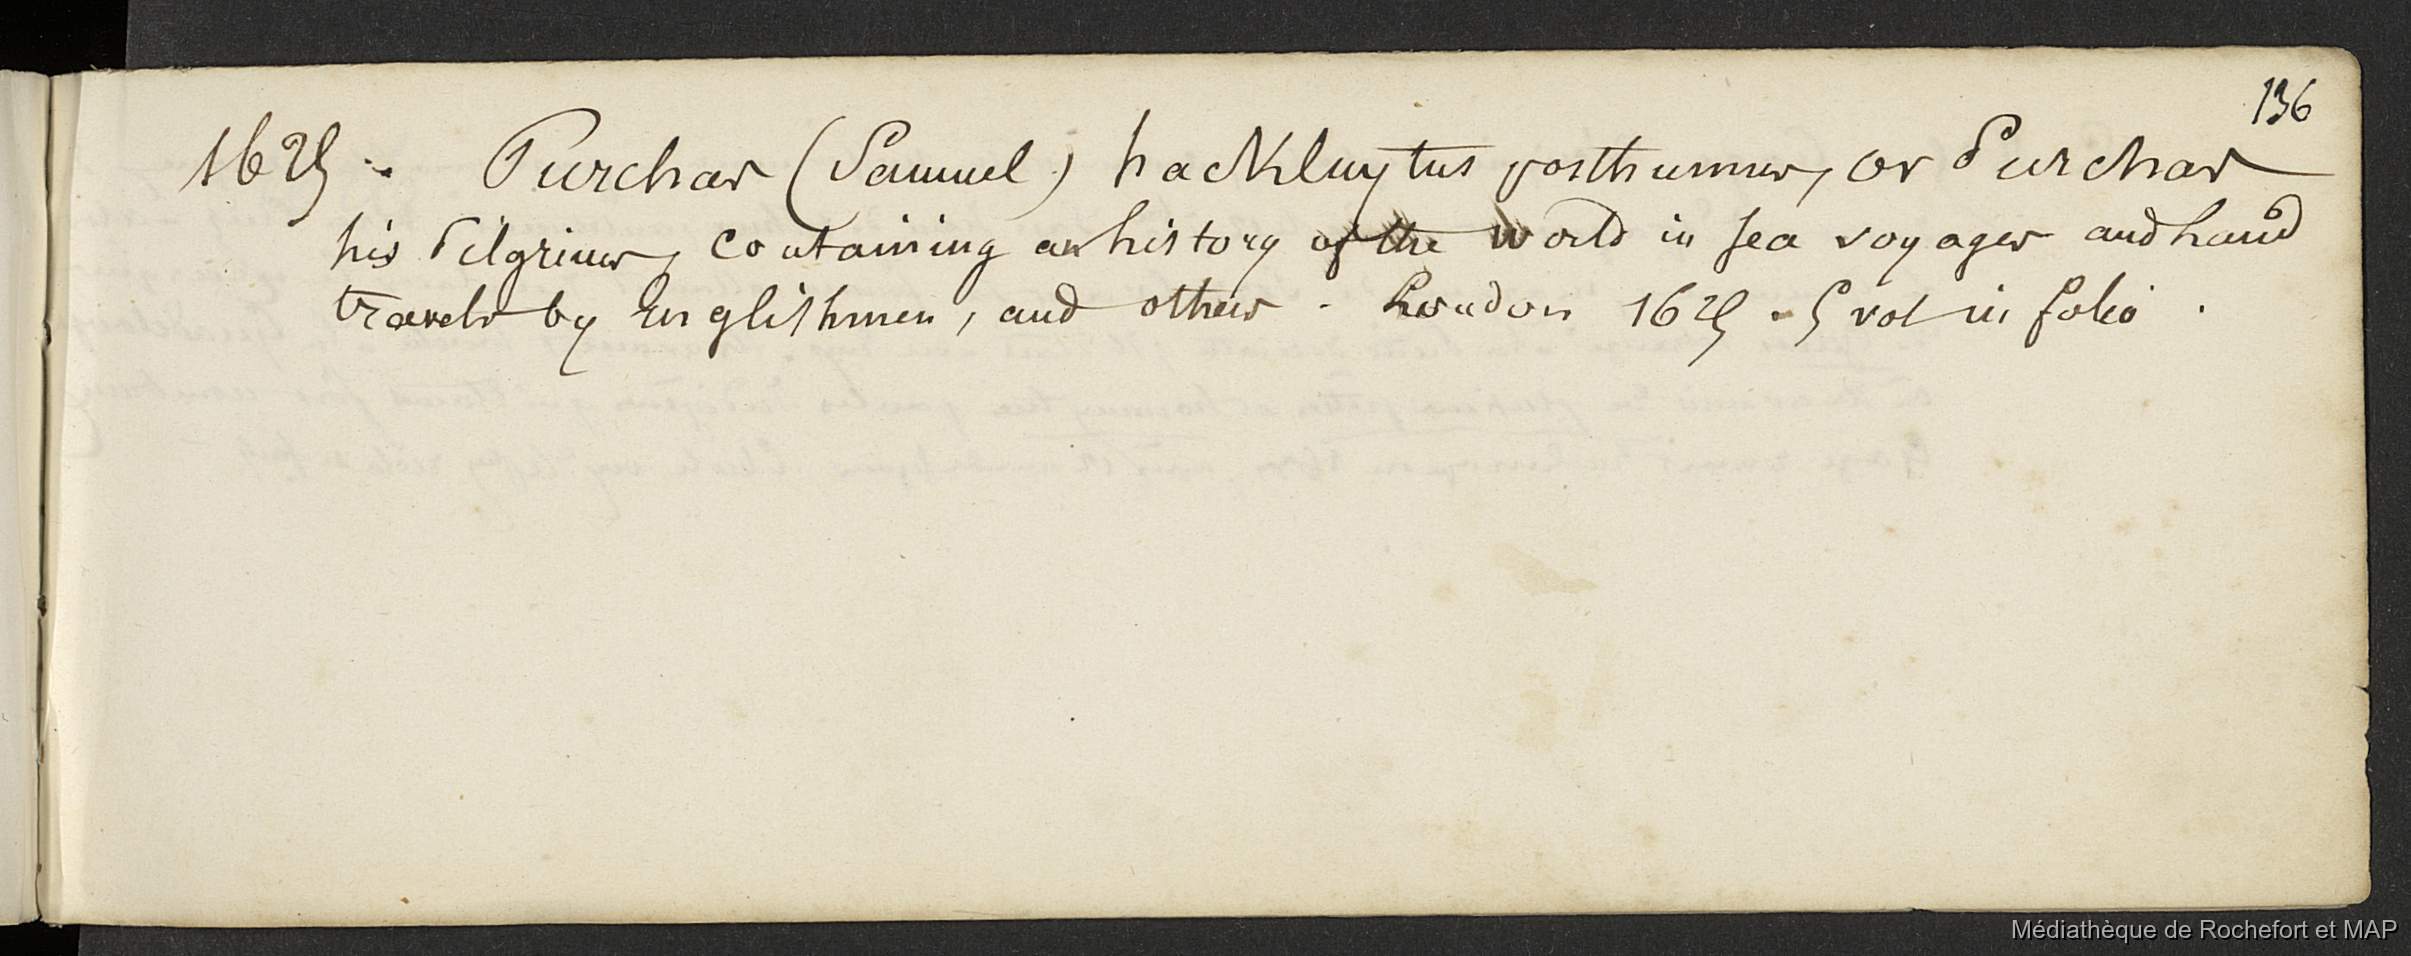 136
1625 . Purchas (Samuel) hackluytus posthumus, or Purchas
his Pilgrims, containing an history of the World in sea voyages and land
travels by Englishmen, and others . London 1625 . 5 vol in folio .
Médiathèque de Rochefort et MAP